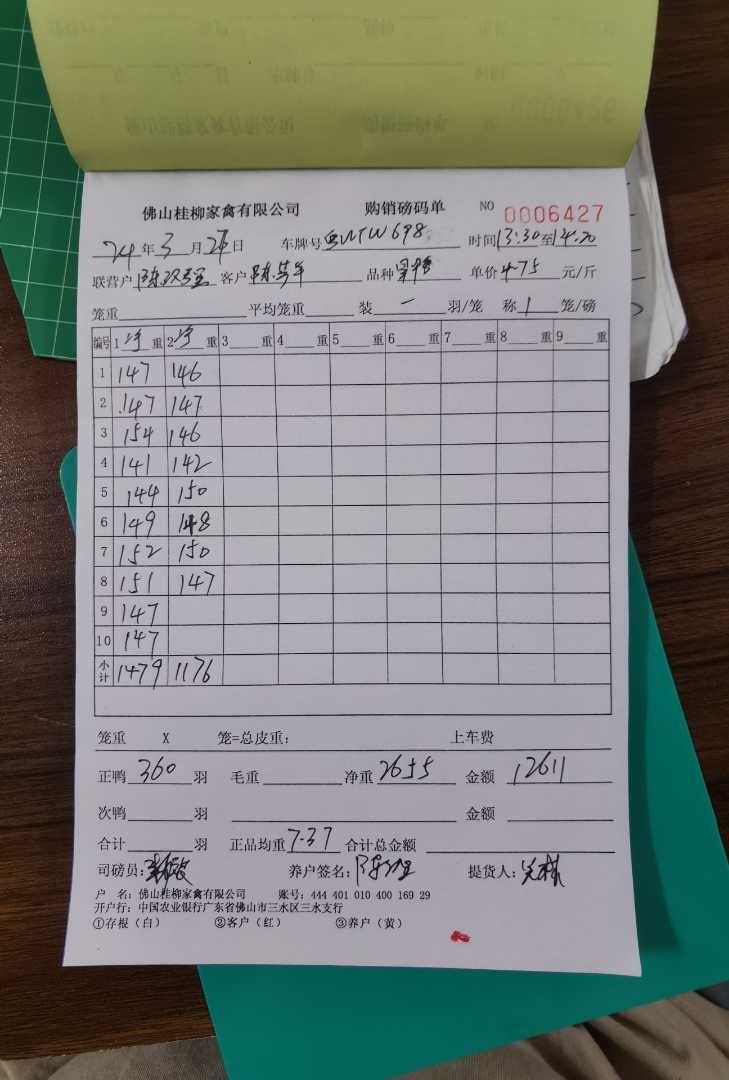 佛山桂柳家禽有限公司 购销磅码单 NO 0006427
24年3月27日 车牌号 WTW698 时间13:30至14.20
联营户 客户 品种 单价4.75元/斤
笼重 平均笼重 装一羽/笼 称1笼/磅
编号 1净重 2净重 3重 4重 5重 6重 7重 8重 9重
1 147 146
2 147 147
3 154 146
4 141 142
5 144 150
6 149 148
7 152 150
8 151 147
9 147
10 147
小计 1479 1176
笼重 X 笼=总皮重: 上车费
正鸭360羽 毛重 净重2655 金额12611
次鸭 羽 金额
合计 羽 正品均重7.37 合计总金额
司磅员: 养户签名: 提货人:
户 名: 佛山桂柳家禽有限公司 账号: 444 401 010 400 169 29
开户行: 中国农业银行广东省佛山市三水区三水支行
①存根(白) ②客户(红) ③养户(黄)